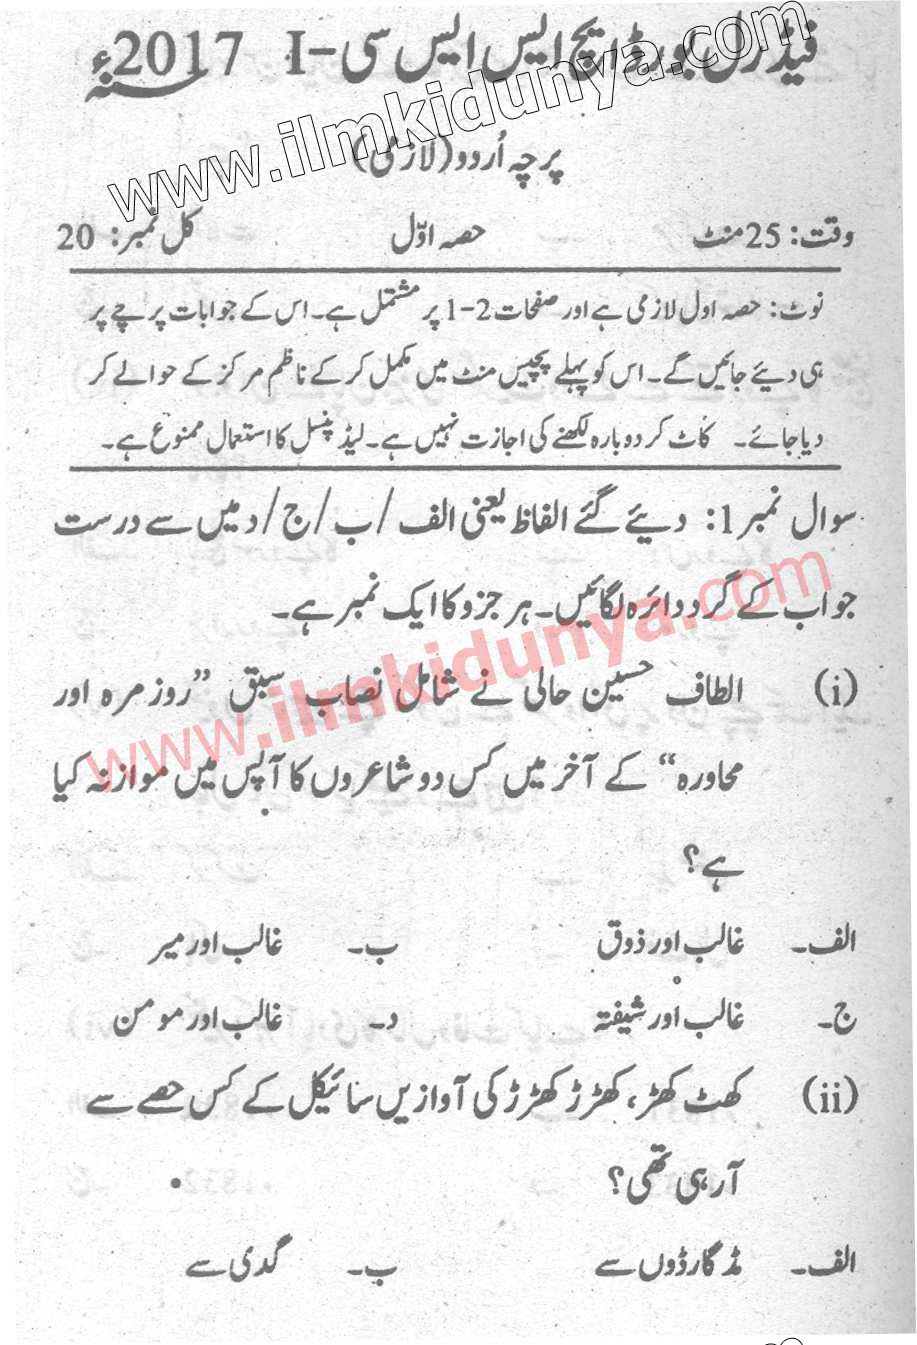 فیڈرل بورڈ ایچ ایس ایس سی-I 2017ء
www.ilmkidunya.com
پرچہ اُردو (لازمی)
وقت: 25 منٹ حصہ اوّل کل نمبر: 20
نوٹ: حصہ اول لازمی ہے اور صفحات 2-1 پر مشتمل ہے۔ اس کے جوابات پرچے پر
ہی دیئے جائیں گے۔ اس کو پہلے پچیس منٹ میں مکمل کر کے ناظم مرکز کے حوالے کر
دیا جائے۔ کاٹ کر دوبارہ لکھنے کی اجازت نہیں ہے۔ لیڈ پنسل کا استعمال ممنوع ہے۔
سوال نمبر 1: دیئے گئے الفاظ یعنی الف/ب/ج/د میں سے درست
جواب کے گرد دائرہ لگائیں۔ ہر جزو کا ایک نمبر ہے۔
www.ilmkidunya.com
(i) الطاف حسین حالی نے شامل نصاب سبق ”روزمرہ اور
محاورہ“ کے آخر میں کس دو شاعروں کا آپس میں موازنہ کیا
ہے؟
الف۔ غالب اور ذوق ب۔ غالب اور میر
ج۔ غالب اور شیفتہ د۔ غالب اور مومن
(ii) کھٹ کھڑ، کھڑڑ کھڑڑ کی آوازیں سائیکل کے کس حصے سے
آ رہی تھی؟
الف۔ مڈگارڈوں سے ب۔ گدی سے